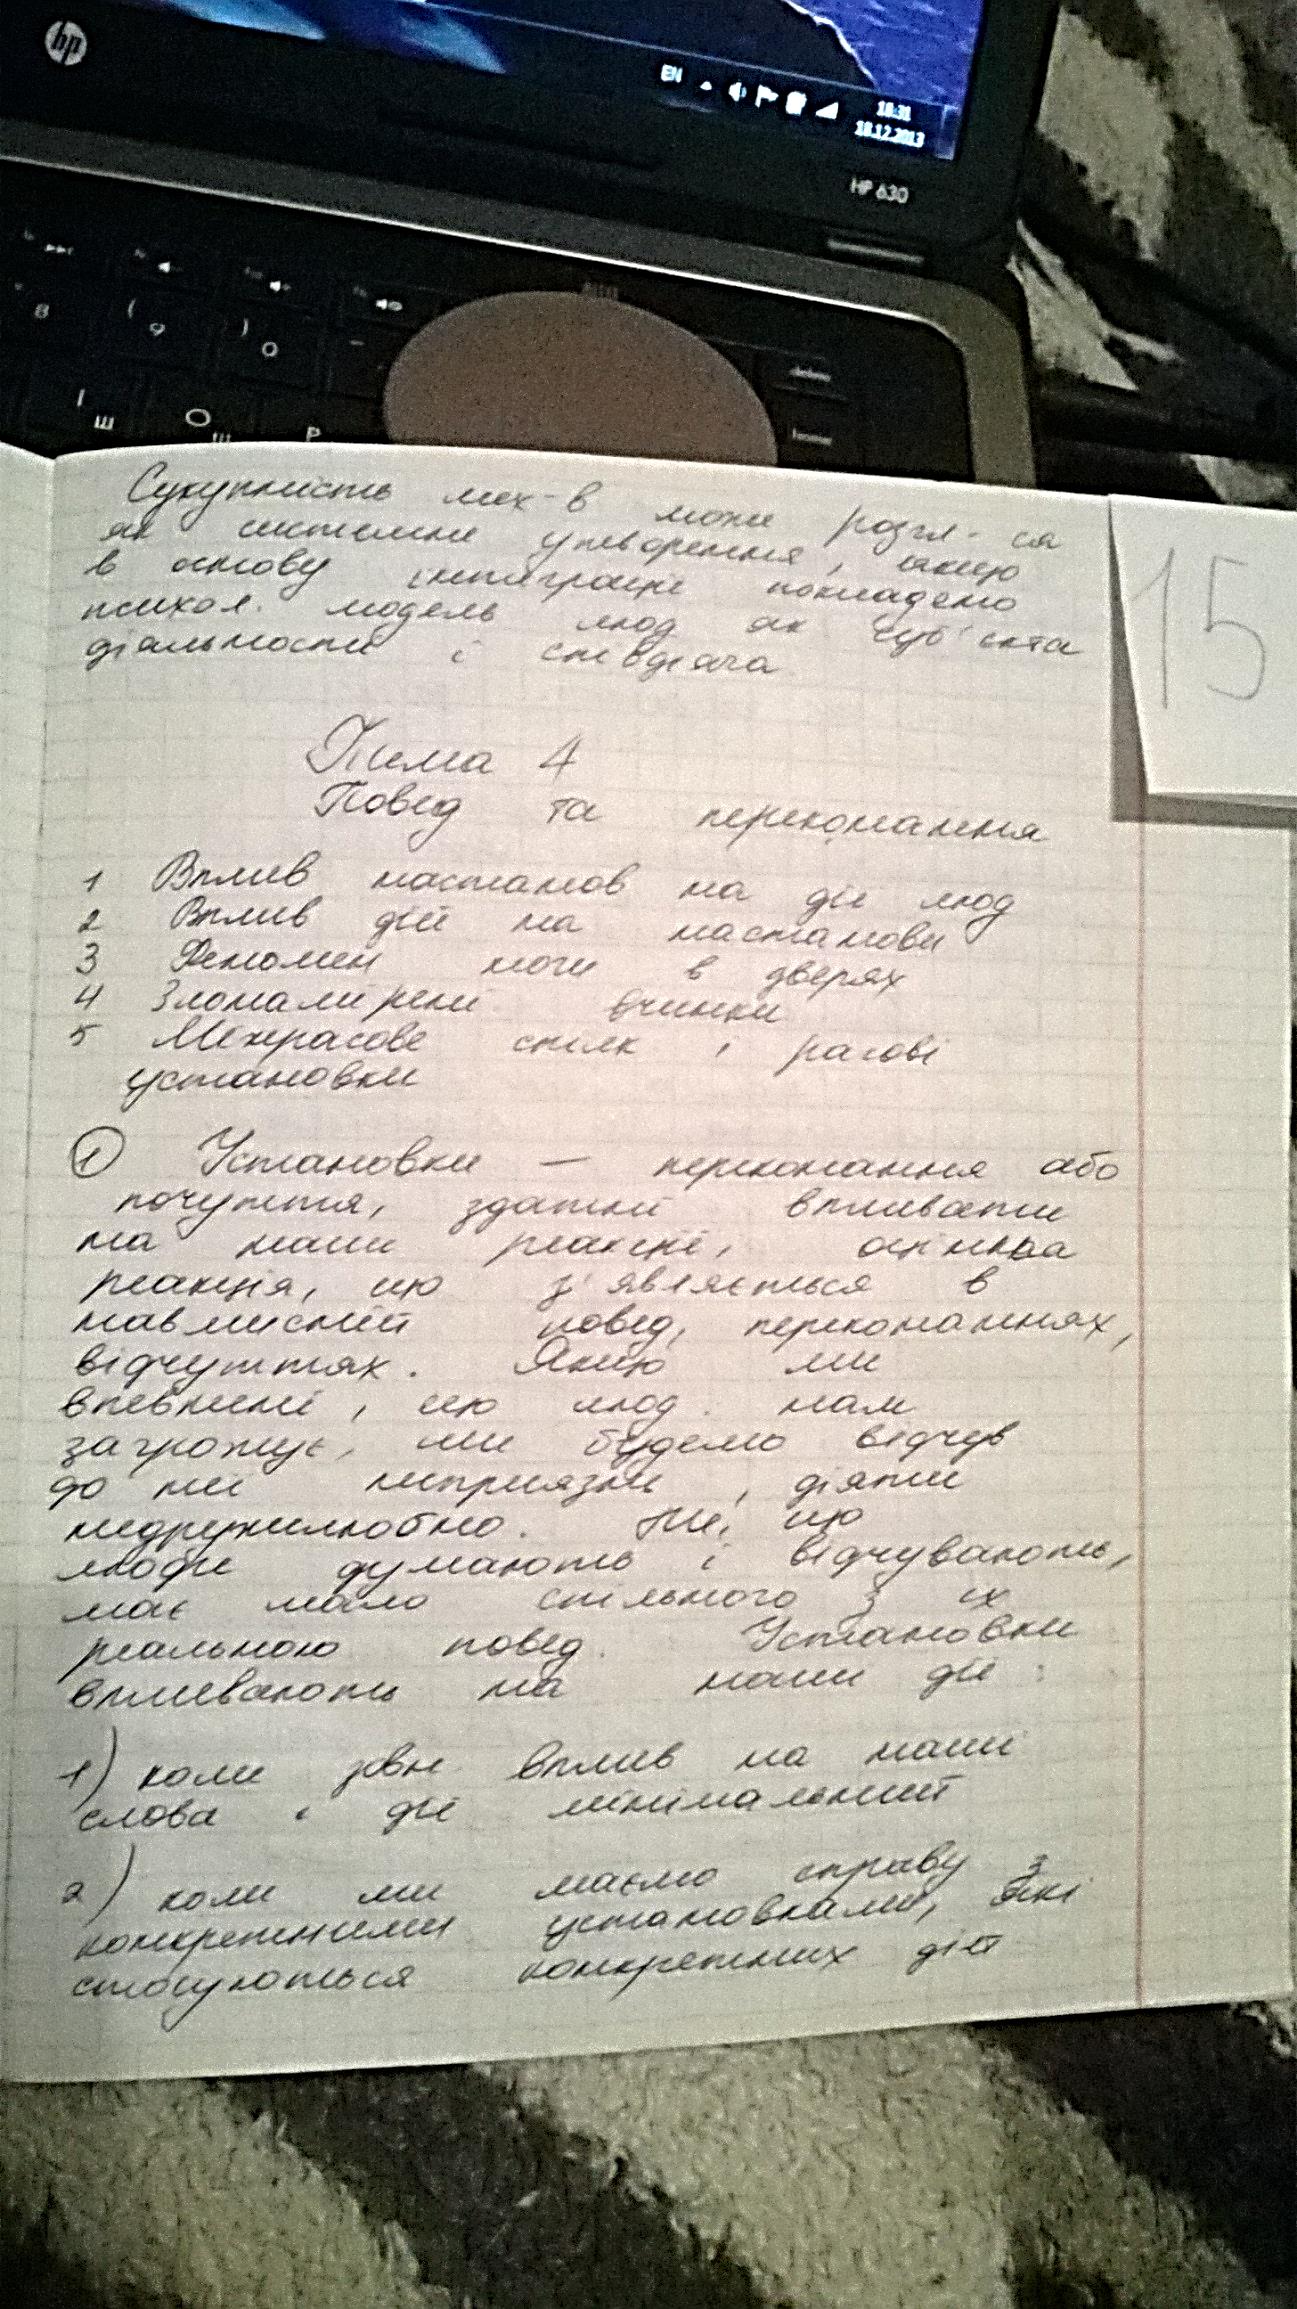 hp
EN
18:31
18.12.2013
HP 630
8
( 9
) 0
-
І Ш
O Щ
P
15
Сукупність мех-в може розгл-ся
як системне утворення, якщо
в основу інтеграції покладено
психол. модель люд як суб'єкта
діяльності і співдіяча
Тема 4
Повед та переконання
1 Вплив настанов на дії люд
2 Вплив дій на настанови
3 Феномен ноги в дверях
4 Злонамірені вчинки
5 Міжрасове спілк і расові
установки
1 Установки — переконання або
почуття, здатні впливати
на наши реакції, оцінка
реакція, що з'являється в
навмисній повед, переконаннях,
відчуттях. Якщо ми
впевнені, що люд. нам
загрожує, ми будемо відчув
до неї неприязнь, діяти
недружелюбно. Те, що
люди думають і відчувають,
має мало спільного з їх
реальною повед. Установки
впливають на наши дії:
1) коли зовн. вплив на наші
слова і дії мінімальний
2) коли ми маємо справу з
конкретними установками, які
стосуються конкретних дій